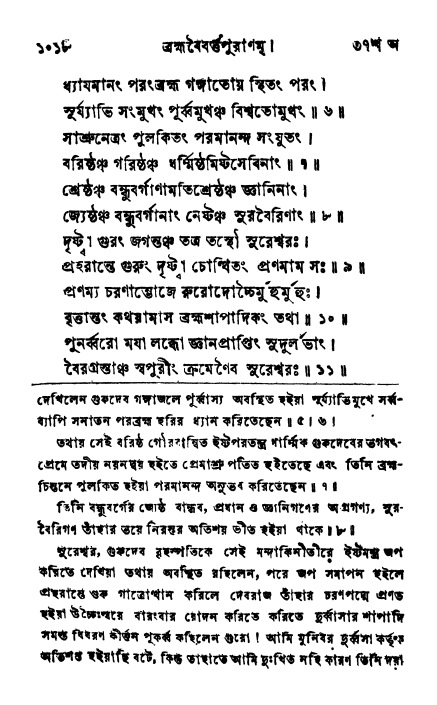 ১০১৮ ব্রহ্মবৈবর্ত্তপুরাণম্। ৩৭শ অ
ধ্যায়মানং পরংব্রহ্ম গঙ্গাতোয় স্থিতং পরং।
সূর্য্যাভি সংমুখং পূর্ব্বমুখঞ্চ বিশ্বতোমুখং ॥ ৬ ॥
সাশ্রুনেত্রং পুলকিতং পরমানন্দ সংযুতং।
বরিষ্ঠঞ্চ গরিষ্ঠঞ্চ ধর্ম্মিষ্ঠমিষ্টসেবিনাং ॥ ৭ ॥
শ্রেষ্ঠঞ্চ বন্ধুবর্গাণামতিশ্রেষ্ঠঞ্চ জ্ঞানিনাং।
জ্যেষ্ঠঞ্চ বন্ধুবর্গানাং নেষ্টঞ্চ সুরবৈরিণাং ॥ ৮ ॥
দৃষ্ট্বা গুরং জগন্তঞ্চ তত্র তস্থৌ সুরেশ্বরঃ।
প্রহরান্তে গুরুং দৃষ্ট্বা চোত্থিতং প্রণমাম সঃ ॥ ৯ ॥
প্রণম্য চরণাম্ভোজে রুরোদোচ্চৈর্মুহুর্মুহুঃ।
বৃত্তান্তং কথয়ামাস ব্রহ্মশাপাদিকং তথা ॥ ১০ ॥
পুনর্ব্বরো ময়া লব্ধো জ্ঞানপ্রাপ্তিং সুদুর্লভাং।
বৈরগ্রস্তাঞ্চ স্বপুরীং ক্রমেণৈব সুরেশ্বরঃ ॥ ১১ ॥
দেখিলেন গুরুদেব গঙ্গাজলে পূর্ব্বাস্য অবস্থিত হইয়া সূর্য্যাভিমুখে সর্ব্ব-
ব্যাপি সনাতন পরব্রহ্ম হরির ধ্যান করিতেছেন ॥ ৫। ৬।
তথায় সেই বরিষ্ঠ গৌরবান্বিত ইষ্টপরতন্ত্র ধার্ম্মিক গুরুদেবের ভগবৎ-
প্রেমে তদীয় নয়নদ্বয় হইতে প্রেমাশ্রু পতিত হইতেছে এবং তিনি ব্রহ্ম-
চিন্তনে পুলকিত হইয়া পরমানন্দ অনুভব করিতেছেন ॥ ৭ ॥
তিনি বন্ধুবর্গের জ্যেষ্ঠ বান্ধব, প্রধান ও জ্ঞানিগণের অগ্রগণ্য, সুর-
বৈরিগণ তাঁহার ভয়ে নিরন্তর অতিশয় ভীত হইয়া থাকে ॥ ৮ ॥
সুরেশ্বর, গুরুদেব বৃহস্পতিকে সেই মন্দাকিনীতীরে ইষ্টমন্ত্র জপ
করিতে দেখিয়া তথায় অবস্থিত রহিলেন, পরে জপ সমাপন হইলে
প্রহরান্তে গুরু গাত্রোত্থান করিলে দেবরাজ তাঁহার চরণপদ্মে প্রণত
হইয়া উচ্চৈঃস্বরে বারংবার রোদন করিতে করিতে দুর্ব্বাসার শাপাদি
সমস্ত বিবরণ কীর্ত্তন পূর্ব্বক কহিলেন গুরো! আমি মুনিবর দুর্ব্বাসা কর্তৃক
অতিশপ্ত হইয়াছি বটে, কিন্তু তাহাতে আমি দুঃখিত নহি কারণ তিনি দয়া